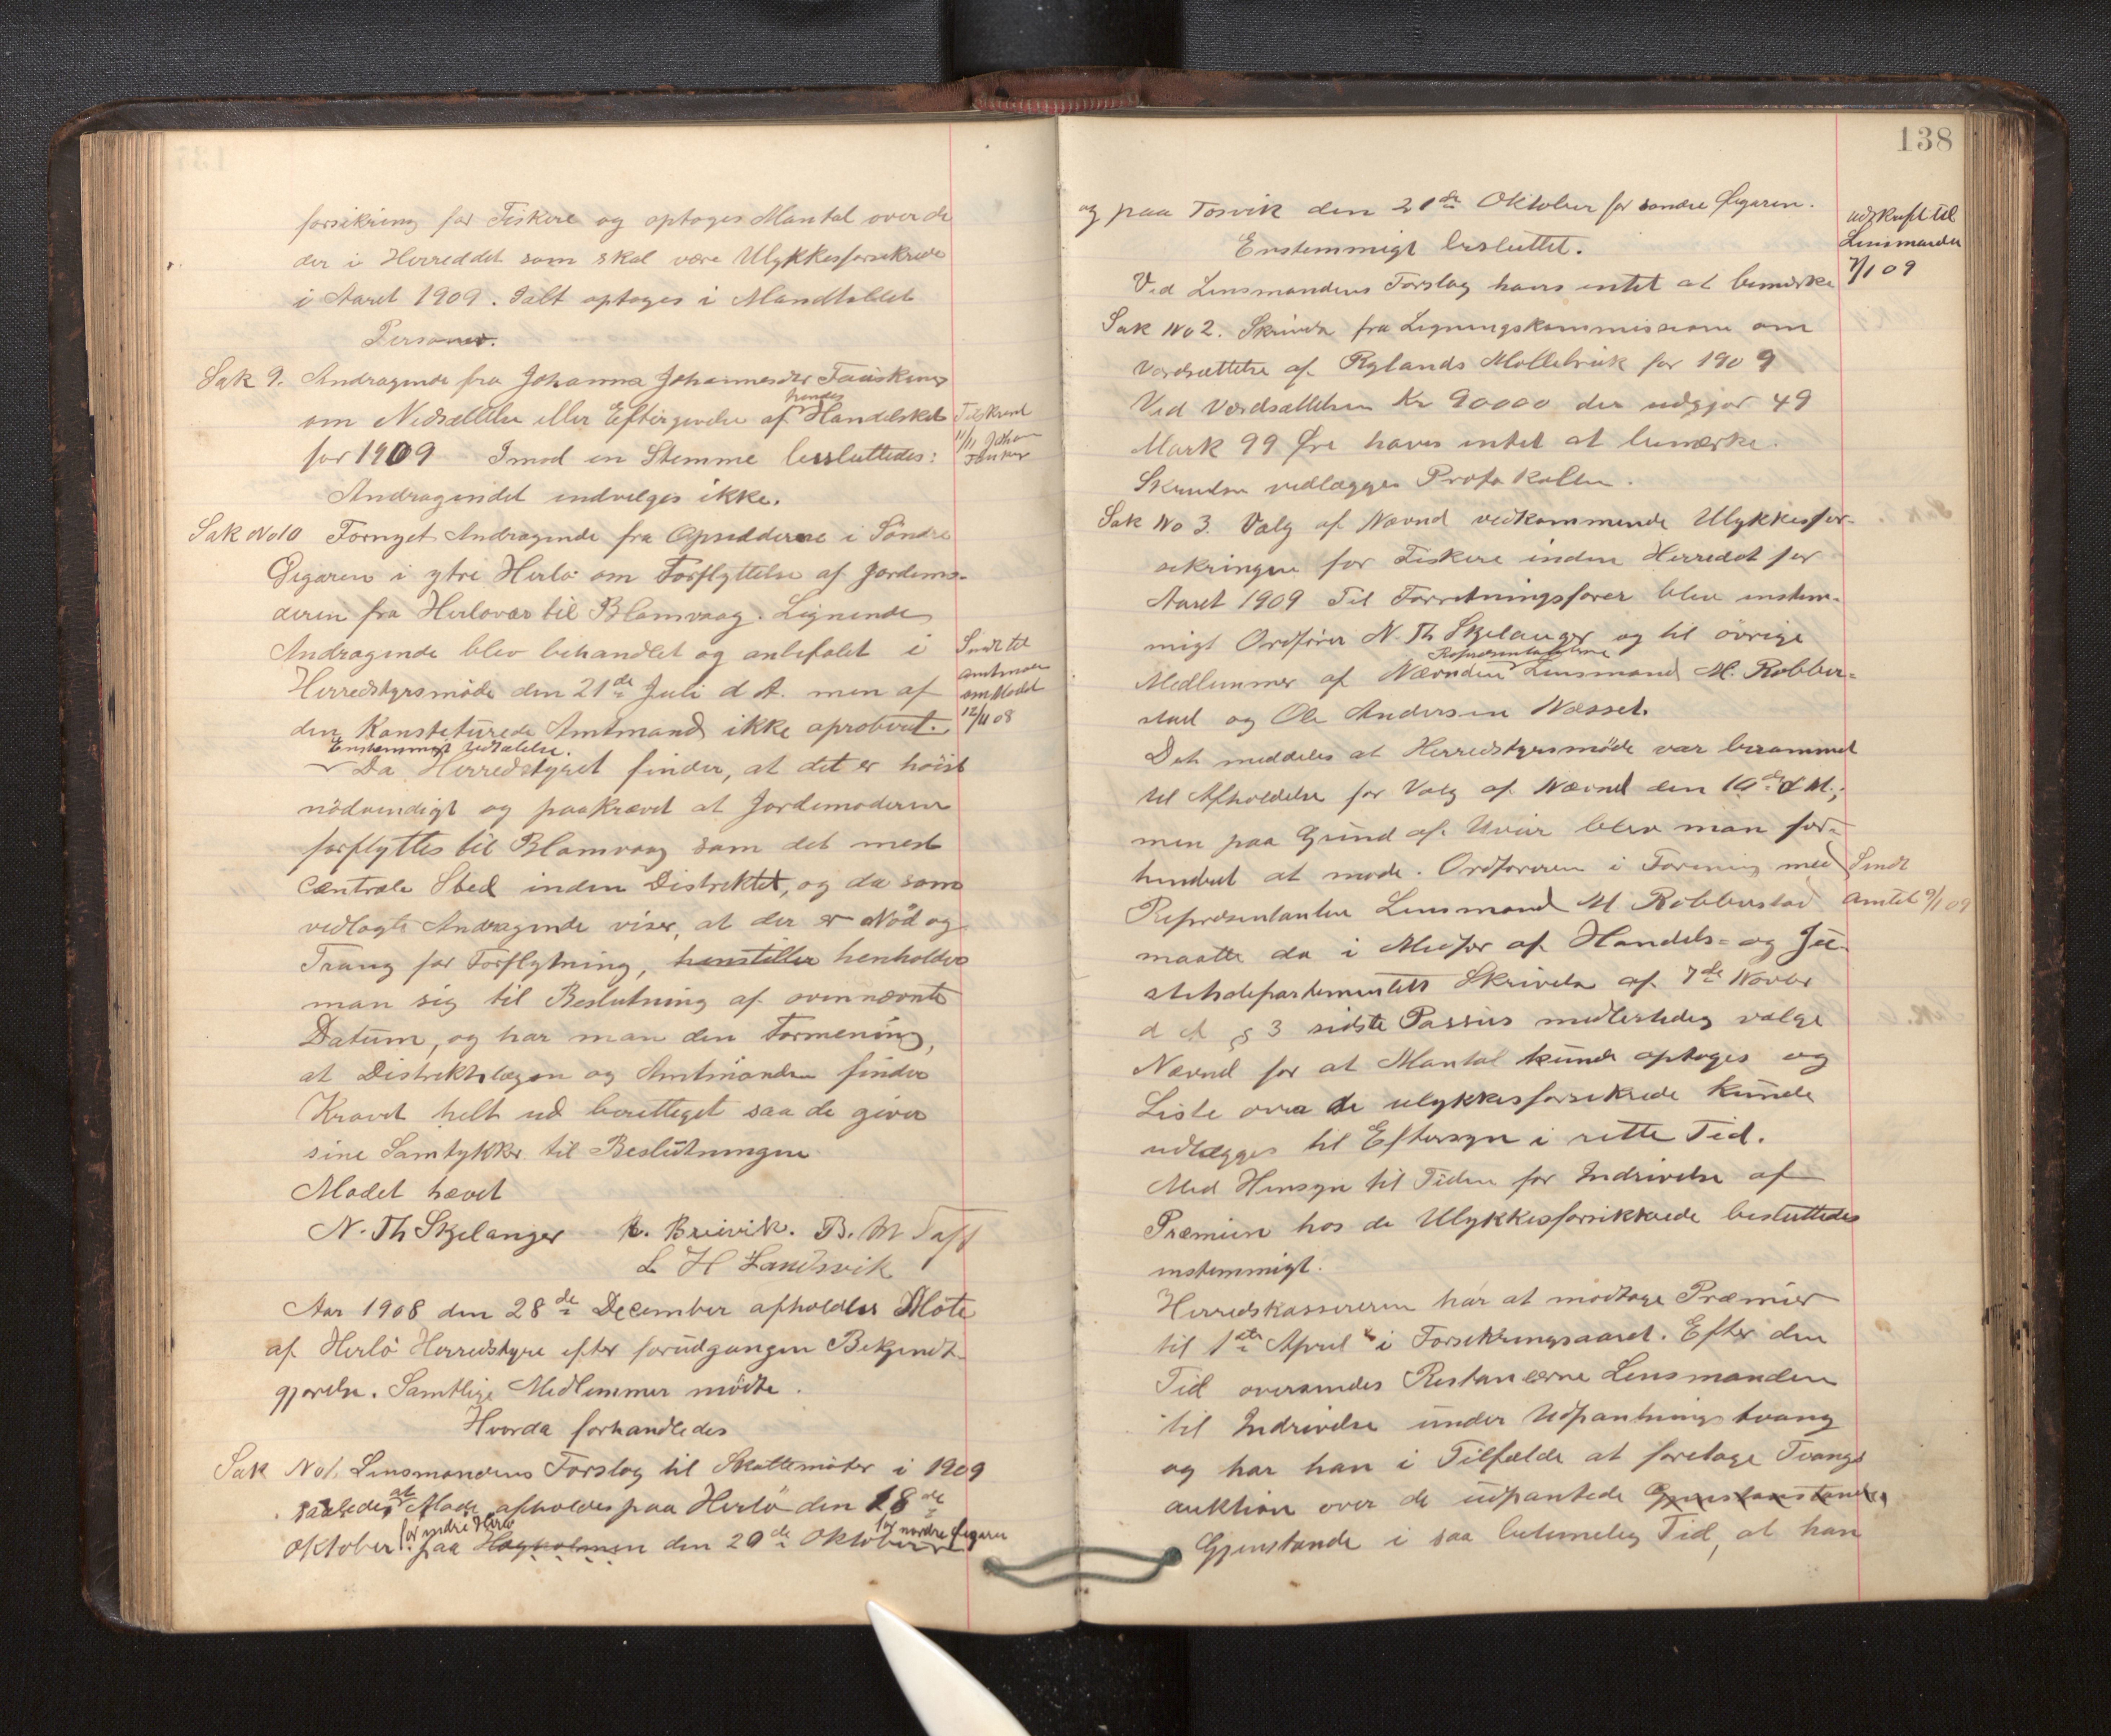 forsikring for Fiskere og optoges Mantal over de
der i Herreddet som skal være Ulykkesforsikrede
i Aaret 1909. Ialt optoges i Mandtallet
Personer.
Sak 9. Andragende fra Johanna Johannesdtr Fauskanes
om Nedsættelse eller Eftergivelse af hendes Handelskat
for 1909 Imod en Stemme besluttedes:
Tilskrevet
11/11 Johan
Andragendet indvilges ikke.
Sak No 10 Fornyet Andragende fra Opsidderne i Söndre
Øygaren i ytre Herlö om Forflyttelse af Jordemo-
deren fra Herlövær til Blomvaag. Lignende
Andragende blev behandlet og anbefalet i
Herredstyrsmöde den 21de Juli d A. men af
den Konstiturede Amtmand ikke aproberet.
Sendt til
Amtmanden
12/11 08
Enstemmigt Udtalelse.
Da Herredstyret finder, at det er höist
nödvendigt og paakrævet at Jordemoderen
forflyttes til Blomvaag som det mest
Centrale Sted inden Distriktet, og da som
vedlagte Andragende viser, at der er Nöd og
Trang for Forflytning, henstiller henholder
man sig til Beslutning af ovennævnte
Datum, og har man den Formening,
at Distriktslægen og Amtmanden finder
Kravet helt ud berettiget saa de giver
sine Samtykker til Beslutningen
Mödet hævet
N. Th Skjelanger R. Breivik. B. M Toft
L H Landsvik
Aar 1908 den 28de December afholdtes Möte
af Herlö Herredstyre efter forudgangen Bekjendt-
gjörelse. Samtlige Medlemmer mödte.
Hvorda forhandledes
Sak No 1. Lensmandens Forslag til Skattemöter i 1909
saaledes at Möde afholdes paa Herlö den 18de
Oktober for indre Herlö paa Hagholmen den 20de Oktober for nordre Øigaren
138
og paa Tosvik den 21de Oktober for söndre Øigaren.
Enstemmigt besluttet.
Ved Lensmandens Forslag haves intet at bemærke
Udskrift til
Lensmanden
7/1 09
Sak No 2. Skrivelse fra Ligningskommissionen om
Værdsættelse af Rylands Möllebruk for 1909
Ved Værdsættelsen Kr 90000 der udgjör 49
Mark 99 Øre haves intet at bemærke.
Skrivelsen vedlægges Protokollen.
Sak No 3. Valg af Nævnd vedkommende Ulykkesfor-
sikringen for Fiskere inden Herredet for
Aaret 1909 Til Forretningsförer blev enstem-
migt Ordförer N. Th Skjelanger og til övrige
Medlemmer af Nævnden Repræsentanterne Lensmand M. Robber-
stad og Ole Andersen Næsset.
Det meddeles at Herredstyrsmöde var berammet
til Afholdelse for Valg af Nævnd den 10de d M.,
men paa Grund af Uveir blev man for-
hindret at möde. Ordföreren i Forening med
Repræsentanten Lensmand M Robberstad
Sendt
Amtet 9/1 09
maatte da i Medfør af Handels- og In-
dustridepartementets Skrivelse af 7de Novbr
d A § 3 sidste Passus midlertidig vælge
Nævnd for at Mantal kunde optages og
Liste over de ulykkesforsikrede kunde
udlægges til Eftersyn i rette Tid.
Med Hensyn til Tiden for Indrivelse af
Præmien hos de Ulykkesforsikkrede besluttedes
enstemmigt.
Herredskassereren har at modtage Præmier
til 1ste April i Forsikringsaaret. Efter den
Tid oversendes Restancerne Lensmanden
til Indrivelse under Udpantningstvang
og har han i Tilfælde at foretage Tvangs
auktion over de udpantede
Gjenstande i saa betimelig Tid, at han